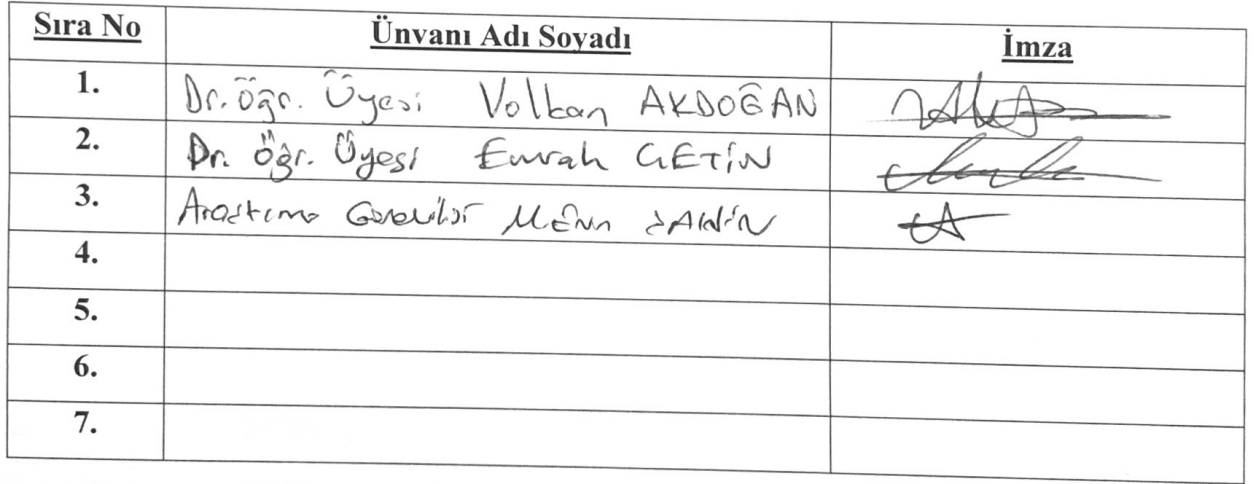 Sıra No Ünvanı Adı Soyadı İmza
1. Dr. Öğr. Üyesi Volkan AKDOĞAN
2. Dr. Öğr. Üyesi Emrah ÇETİN
3. Araştırma Görevlisi
4.
5.
6.
7.